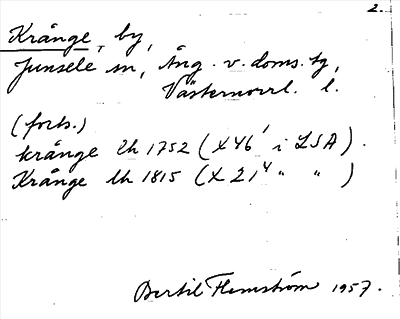 2.
Krånge, by,
Junsele sn, Ång. v. doms. tg,
Västernorrl. l.
(forts.)
krånge lh 1752 (X 46' i LSA).
Krånge lh 1815 (X 21⁴ " " )
Bertil Flemström 1957.